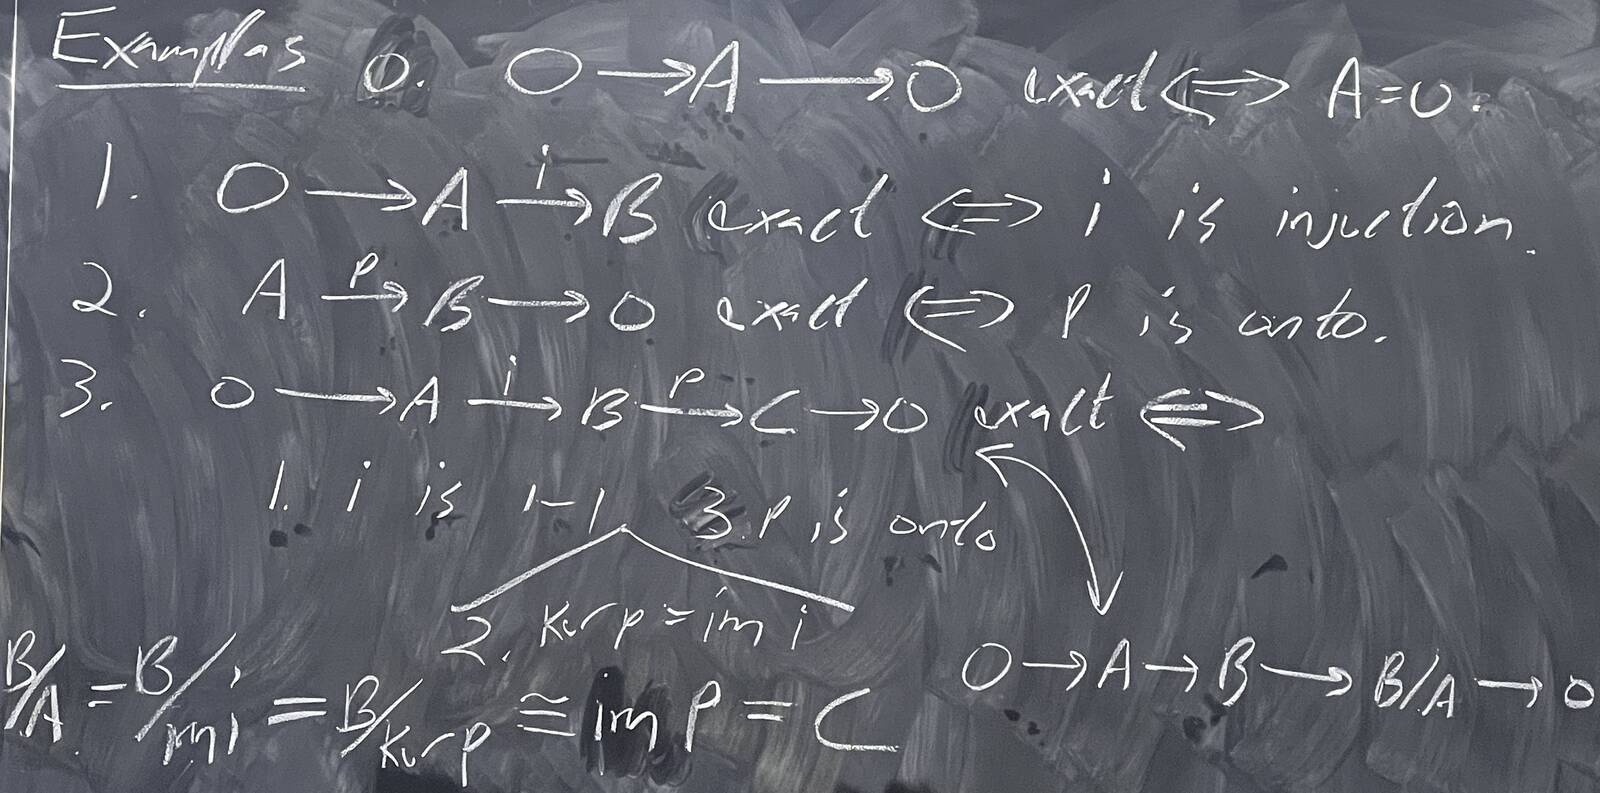 Examples 0. 0 → A → 0 exact ⇔ A=0.
1. 0 → A →^i B exact ⇔ i is injection.
2. A →^p B → 0 exact ⇔ p is onto.
3. 0 → A →^i B →^p C → 0 exact ⇔
1. i is 1-1 3. p is onto
2. ker p = im i
0 → A → B → B/A → 0
B/A = B/im i = B/ker p ≅ im p = C